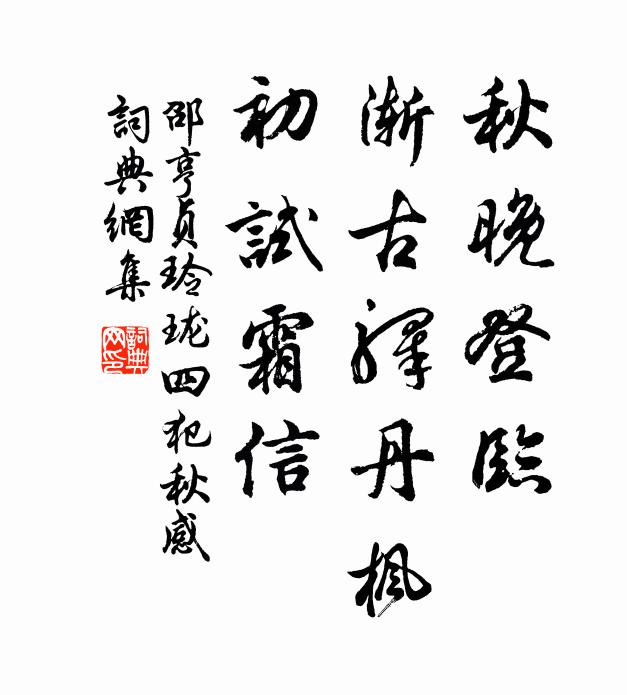 秋晚登臨
漸古驛丹楓
初試霜信
邵亨貞玲瓏四犯秋感
詞典網集
詞典网印